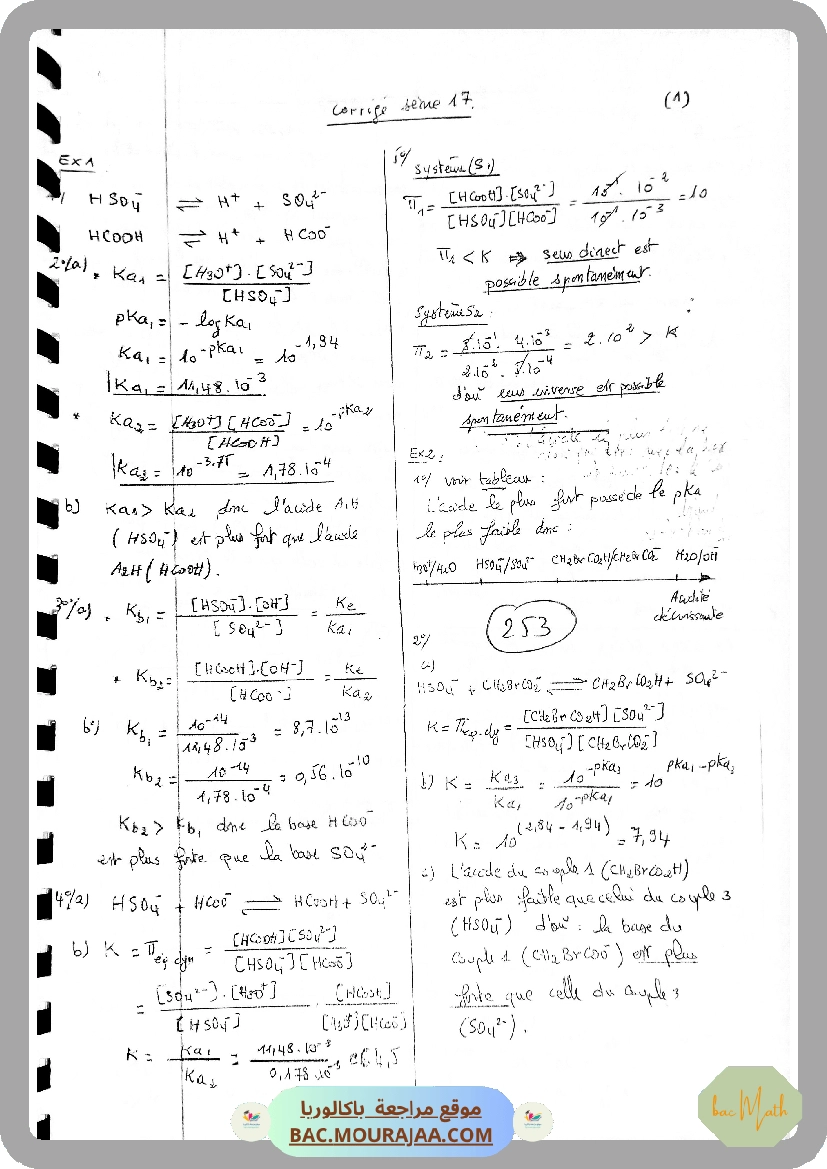 Corrigé série 17.
(1)
Ex 1
HSO4⁻ ⇌ H⁺ + SO4²⁻
HCOOH ⇌ H⁺ + HCOO⁻
2°/a) * Ka1 = [H3O⁺].[SO4²⁻] / [HSO4⁻]
pKa1 = - log Ka1
Ka1 = 10^-pKa1 = 10^-1,94
Ka1 = 11,48.10⁻³
* Ka2 = [H3O⁺][HCOO⁻] / [HCOOH] = 10^-pKa2
Ka2 = 10^-3,75 = 1,78.10⁻⁴
b) Ka1 > Ka2 donc l'acide A1H
(HSO4⁻) est plus fort que l'acide
A2H (HCOOH).
3°/a) . Kb1 = [HSO4⁻].[OH⁻] / [SO4²⁻] = Ke / Ka1
* Kb2 = [HCOOH].[OH⁻] / [HCOO⁻] = Ke / Ka2
b) Kb1 = 10⁻¹⁴ / 11,48.10⁻³ = 8,7.10⁻¹³
Kb2 = 10⁻¹⁴ / 1,78.10⁻⁴ = 0,56.10⁻¹⁰
Kb2 > Kb1 donc la base HCOO⁻
est plus forte que la base SO4²⁻
4°/a) HSO4⁻ + HCOO⁻ ⇌ HCOOH + SO4²⁻
b) K = π eq dyn = [HCOOH][SO4²⁻] / [HSO4⁻][HCOO⁻]
= [SO4²⁻].[H3O⁺] / [HSO4⁻] . [HCOOH] / [H3O⁺][HCOO⁻]
K = Ka1 / Ka2 = 11,48.10⁻³ / 0,178.10⁻³
Système (S1)
π1 = [HCOOH].[SO4²⁻] / [HSO4⁻][HCOO⁻] = 10⁻¹.10⁻² / 10⁻¹.10⁻³ = 10
π1 < K ⇒ sens direct est
possible spontanément.
Système S2 :
π2 = 8.10⁻¹. 4.10⁻³ / 2.10⁻². 8.10⁻⁴ = 2.10² > K
d'où sens inverse est possible
spontanément.
Ex 2 :
1°/ voir tableau :
L'acide le plus fort possède le pKa
le plus faible donc :
HSO4⁻/SO4²⁻ CH2BrCO2H/CH2BrCO2⁻ H2O/OH⁻
Acidité
décroissante
253
2°/
a)
HSO4⁻ + CH2BrCO2⁻ ⇌ CH2BrCO2H + SO4²⁻
K = π eq.dy = [CH2BrCO2H][SO4²⁻] / [HSO4⁻][CH2BrCO2⁻]
b) K = Ka3 / Ka1 = 10^-pKa3 / 10^-pKa1 = 10^pKa1-pKa3
K = 10^(2,84 - 1,94) = 7,94
c) L'acide du couple 1 (CH2BrCO2H)
est plus faible que celui du couple 3
(HSO4⁻) d'où : la base du
couple 1 (CH2BrCOO⁻) est plus
forte que celle du couple 3
(SO4²⁻).
موقع مراجعة باكالوريا
BAC.MOURAJAA.COM
bac Math